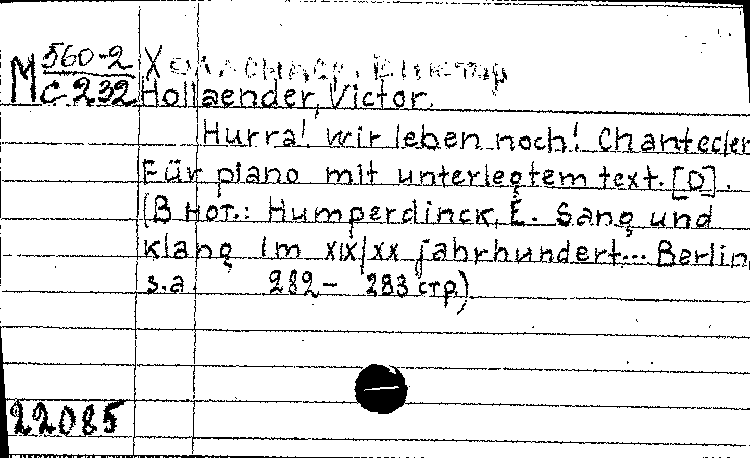 М 560-2
С 232
Холлендер, Виктор
Hollaender, Victor.
Hurra! wir leben noch! Chantecler
Für piano mit unterlegtem text. [D].
(В нот.: Humperdinck, E. Sang und
klang im XIX/XX jahrhundert... Berlin,
s.a. 282- 283 стр.)
22085